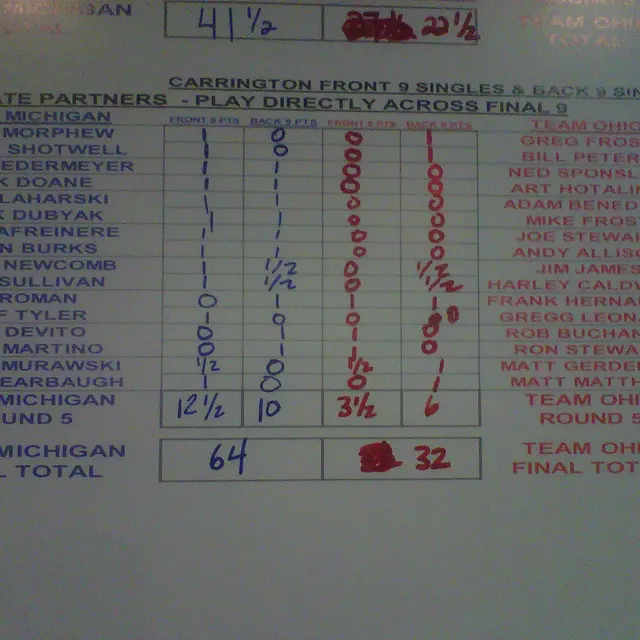 MICHIGAN 41 1/2 22 1/2 TEAM OHI
CARRINGTON FRONT 9 SINGLES & BACK 9 SIN
ATE PARTNERS - PLAY DIRECTLY ACROSS FINAL 9
MICHIGAN FRONT 9 PTS BACK 9 PTS FRONT 9 PTS BACK 9 PTS TEAM OHIO
MORPHEW 1 0 0 1 GREG FROS
SHOTWELL 1 0 0 1 BILL PETER
EDERMEYER 1 1 0 0 NED SPONSL
K DOANE 1 1 0 0 ART HOTALI
LAHARSKI 1 1 0 0 ADAM BENED
K DUBYAK 1 1 0 0 MIKE FROS
AFREINERE 1 1 0 0 JOE STEWA
N BURKS 1 1 0 0 ANDY ALLIS
NEWCOMB 1 1/2 0 1/2 JIM JAMES
SULLIVAN 1 1/2 0 1/2 HARLEY CALDW
ROMAN 0 1 1 1 FRANK HERNA
F TYLER 1 9 0 GREGG LEON
DEVITO 0 1 1 0 ROB BUCHAN
MARTINO 0 1 1 0 RON STEWA
MURAWSKI 1/2 0 1/2 1 MATT GERDE
EARBAUGH 1 0 0 1 MATT MATTH
MICHIGAN 12 1/2 10 3 1/2 6 TEAM OHI
UND 5 ROUND 5
MICHIGAN 64 32 TEAM OHI
L TOTAL FINAL TOT